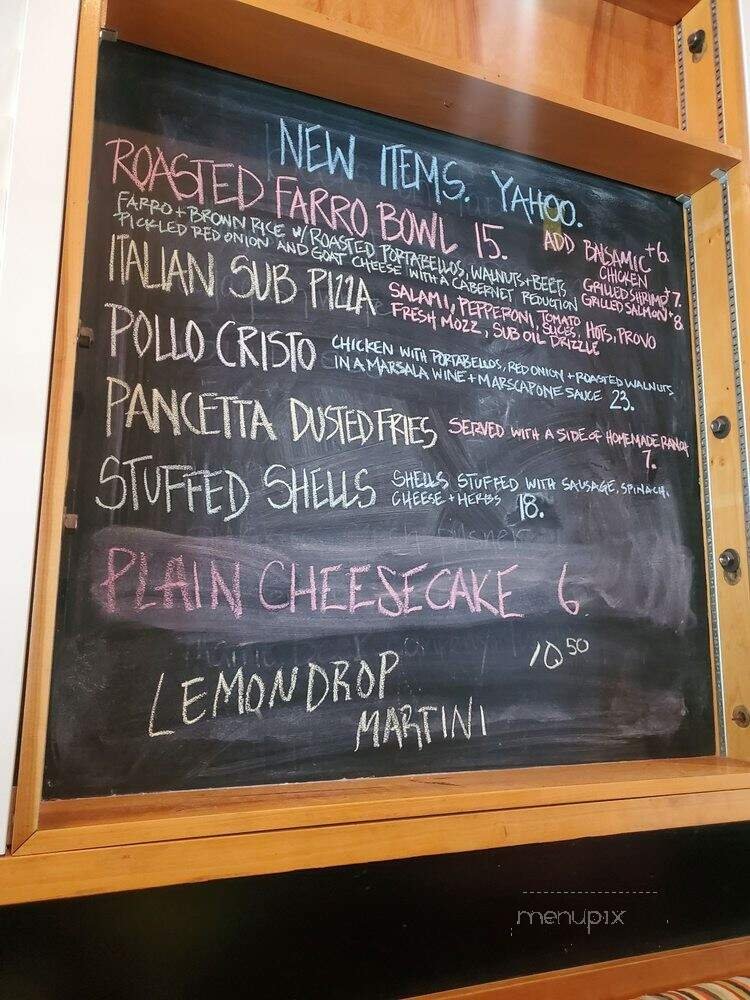 NEW ITEMS. YAHOO.
ROASTED FARRO BOWL 15.
FARRO + BROWN RICE W/ ROASTED PORTABELLOS, WALNUTS + BEETS,
PICKLED RED ONION AND GOAT CHEESE WITH A CABERNET REDUCTION
ADD BALSAMIC +6.
CHICKEN
GRILLED SHRIMP +7.
GRILLED SALMON +8
ITALIAN SUB PIZZA
SALAMI, PEPPERONI, TOMATO SLICES, HOTS, PROVO
FRESH MOZZ, SUB OIL DRIZZLE
POLLO CRISTO
CHICKEN WITH PORTABELLOS, RED ONION + ROASTED WALNUTS
IN A MARSALA WINE + MARSCAPONE SAUCE 23.
PANCETTA DUSTED FRIES
SERVED WITH A SIDE OF HOMEMADE RANCH
7.
STUFFED SHELLS
SHELLS STUFFED WITH SAUSAGE, SPINACH,
CHEESE + HERBS 18.
PLAIN CHEESECAKE 6
LEMONDROP 10 50
MARTINI
menupix